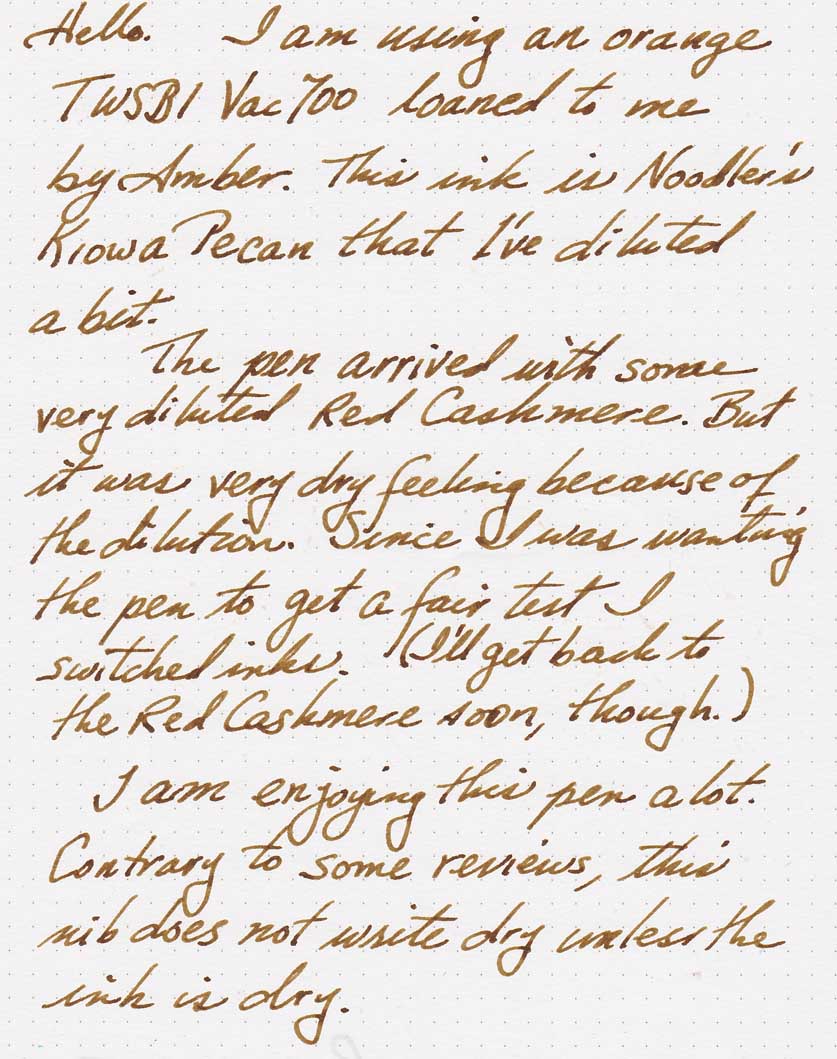 Hello. I am using an orange
TWSBI Vac 700 loaned to me
by Amber. This ink is Noodler's
Kiowa Pecan that I've diluted
a bit.
The pen arrived with some
very diluted Red Cashmere. But
it was very dry feeling because of
the dilution. Since I was wanting
the pen to get a fair test I
switched inks. (I'll get back to
the Red Cashmere soon, though.)
I am enjoying this pen a lot.
Contrary to some reviews, this
nib does not write dry unless the
ink is dry.